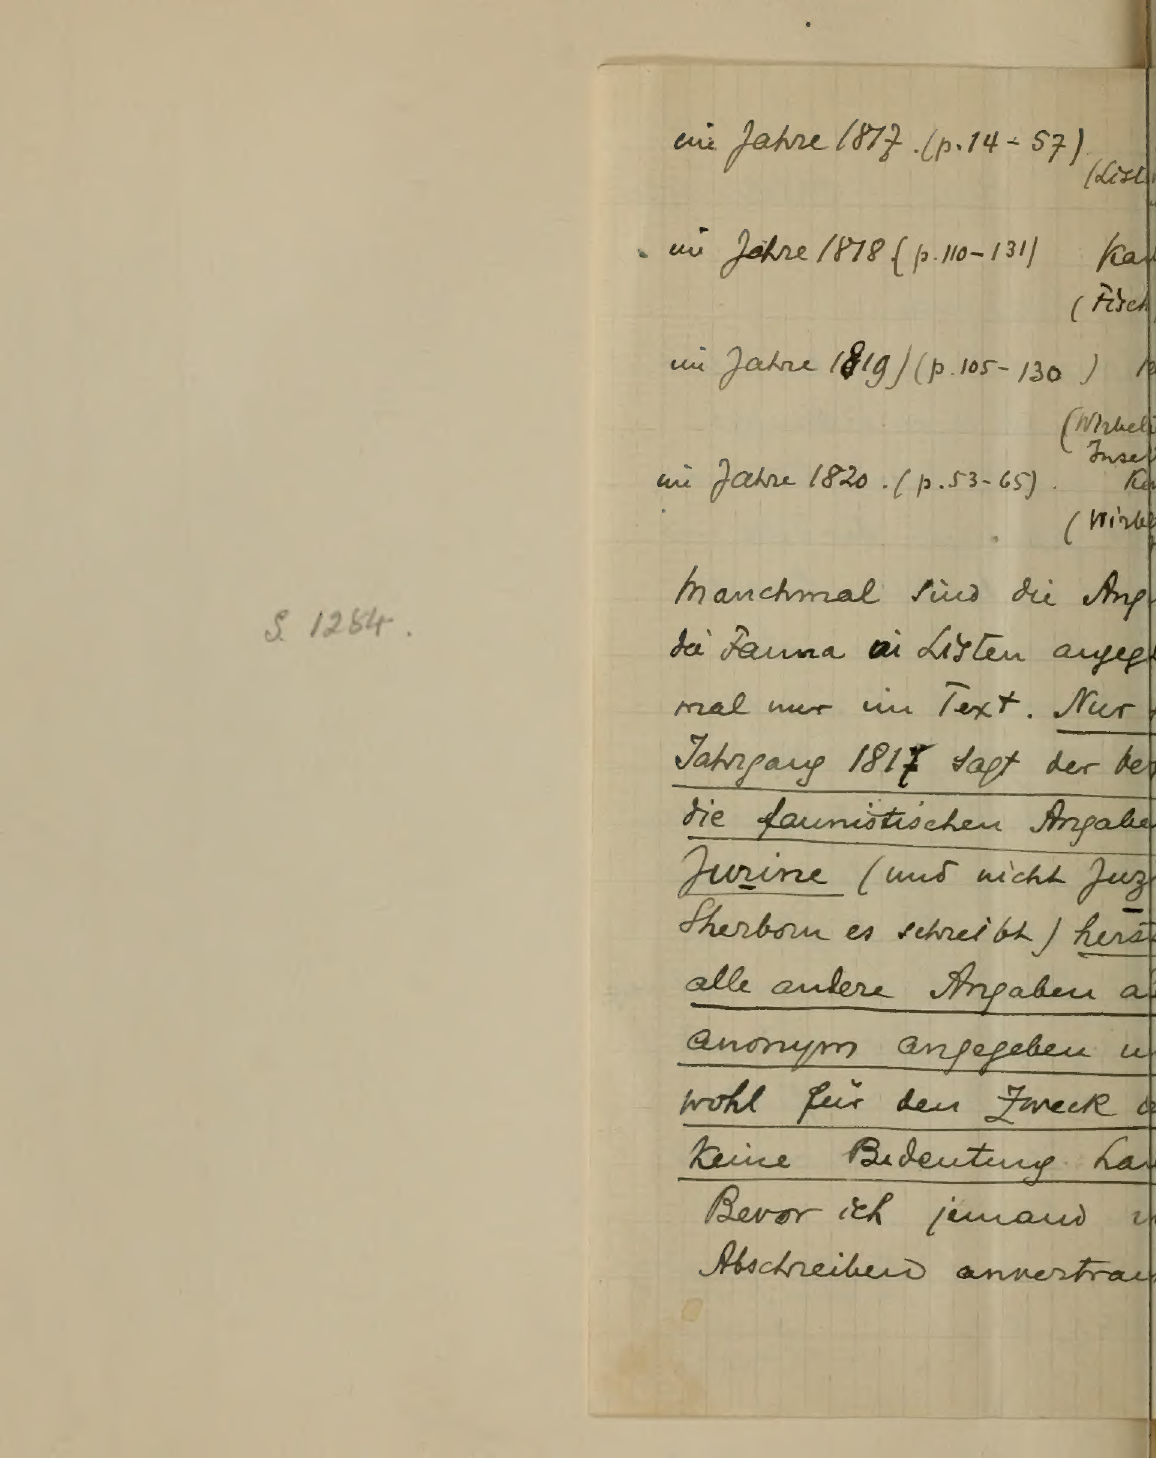 im Jahre 1817. (p. 14 - 57)
(List
im Jahre 1818 (p. 110-131) Kan
(Fisch
im Jahre 1819) (p. 105- 130 )
(Wirbel
Insek
im Jahre 1820. (p. 53-65).
(Wirbe
Manchmal sind die Ang
S. 1254.
die Fauna in Listen angege
mal nur im Text. Nur
Jahrgang 1817 sagt der
die faunistischen Angabe
Jurine (und nicht Juz
Sherborn es schreibt) herst
alle andere Angaben a
anonym angegeben u
wohl für den Zweck
keine Bedeutung
Bevor ich jemand
Abschreiben anvertrau